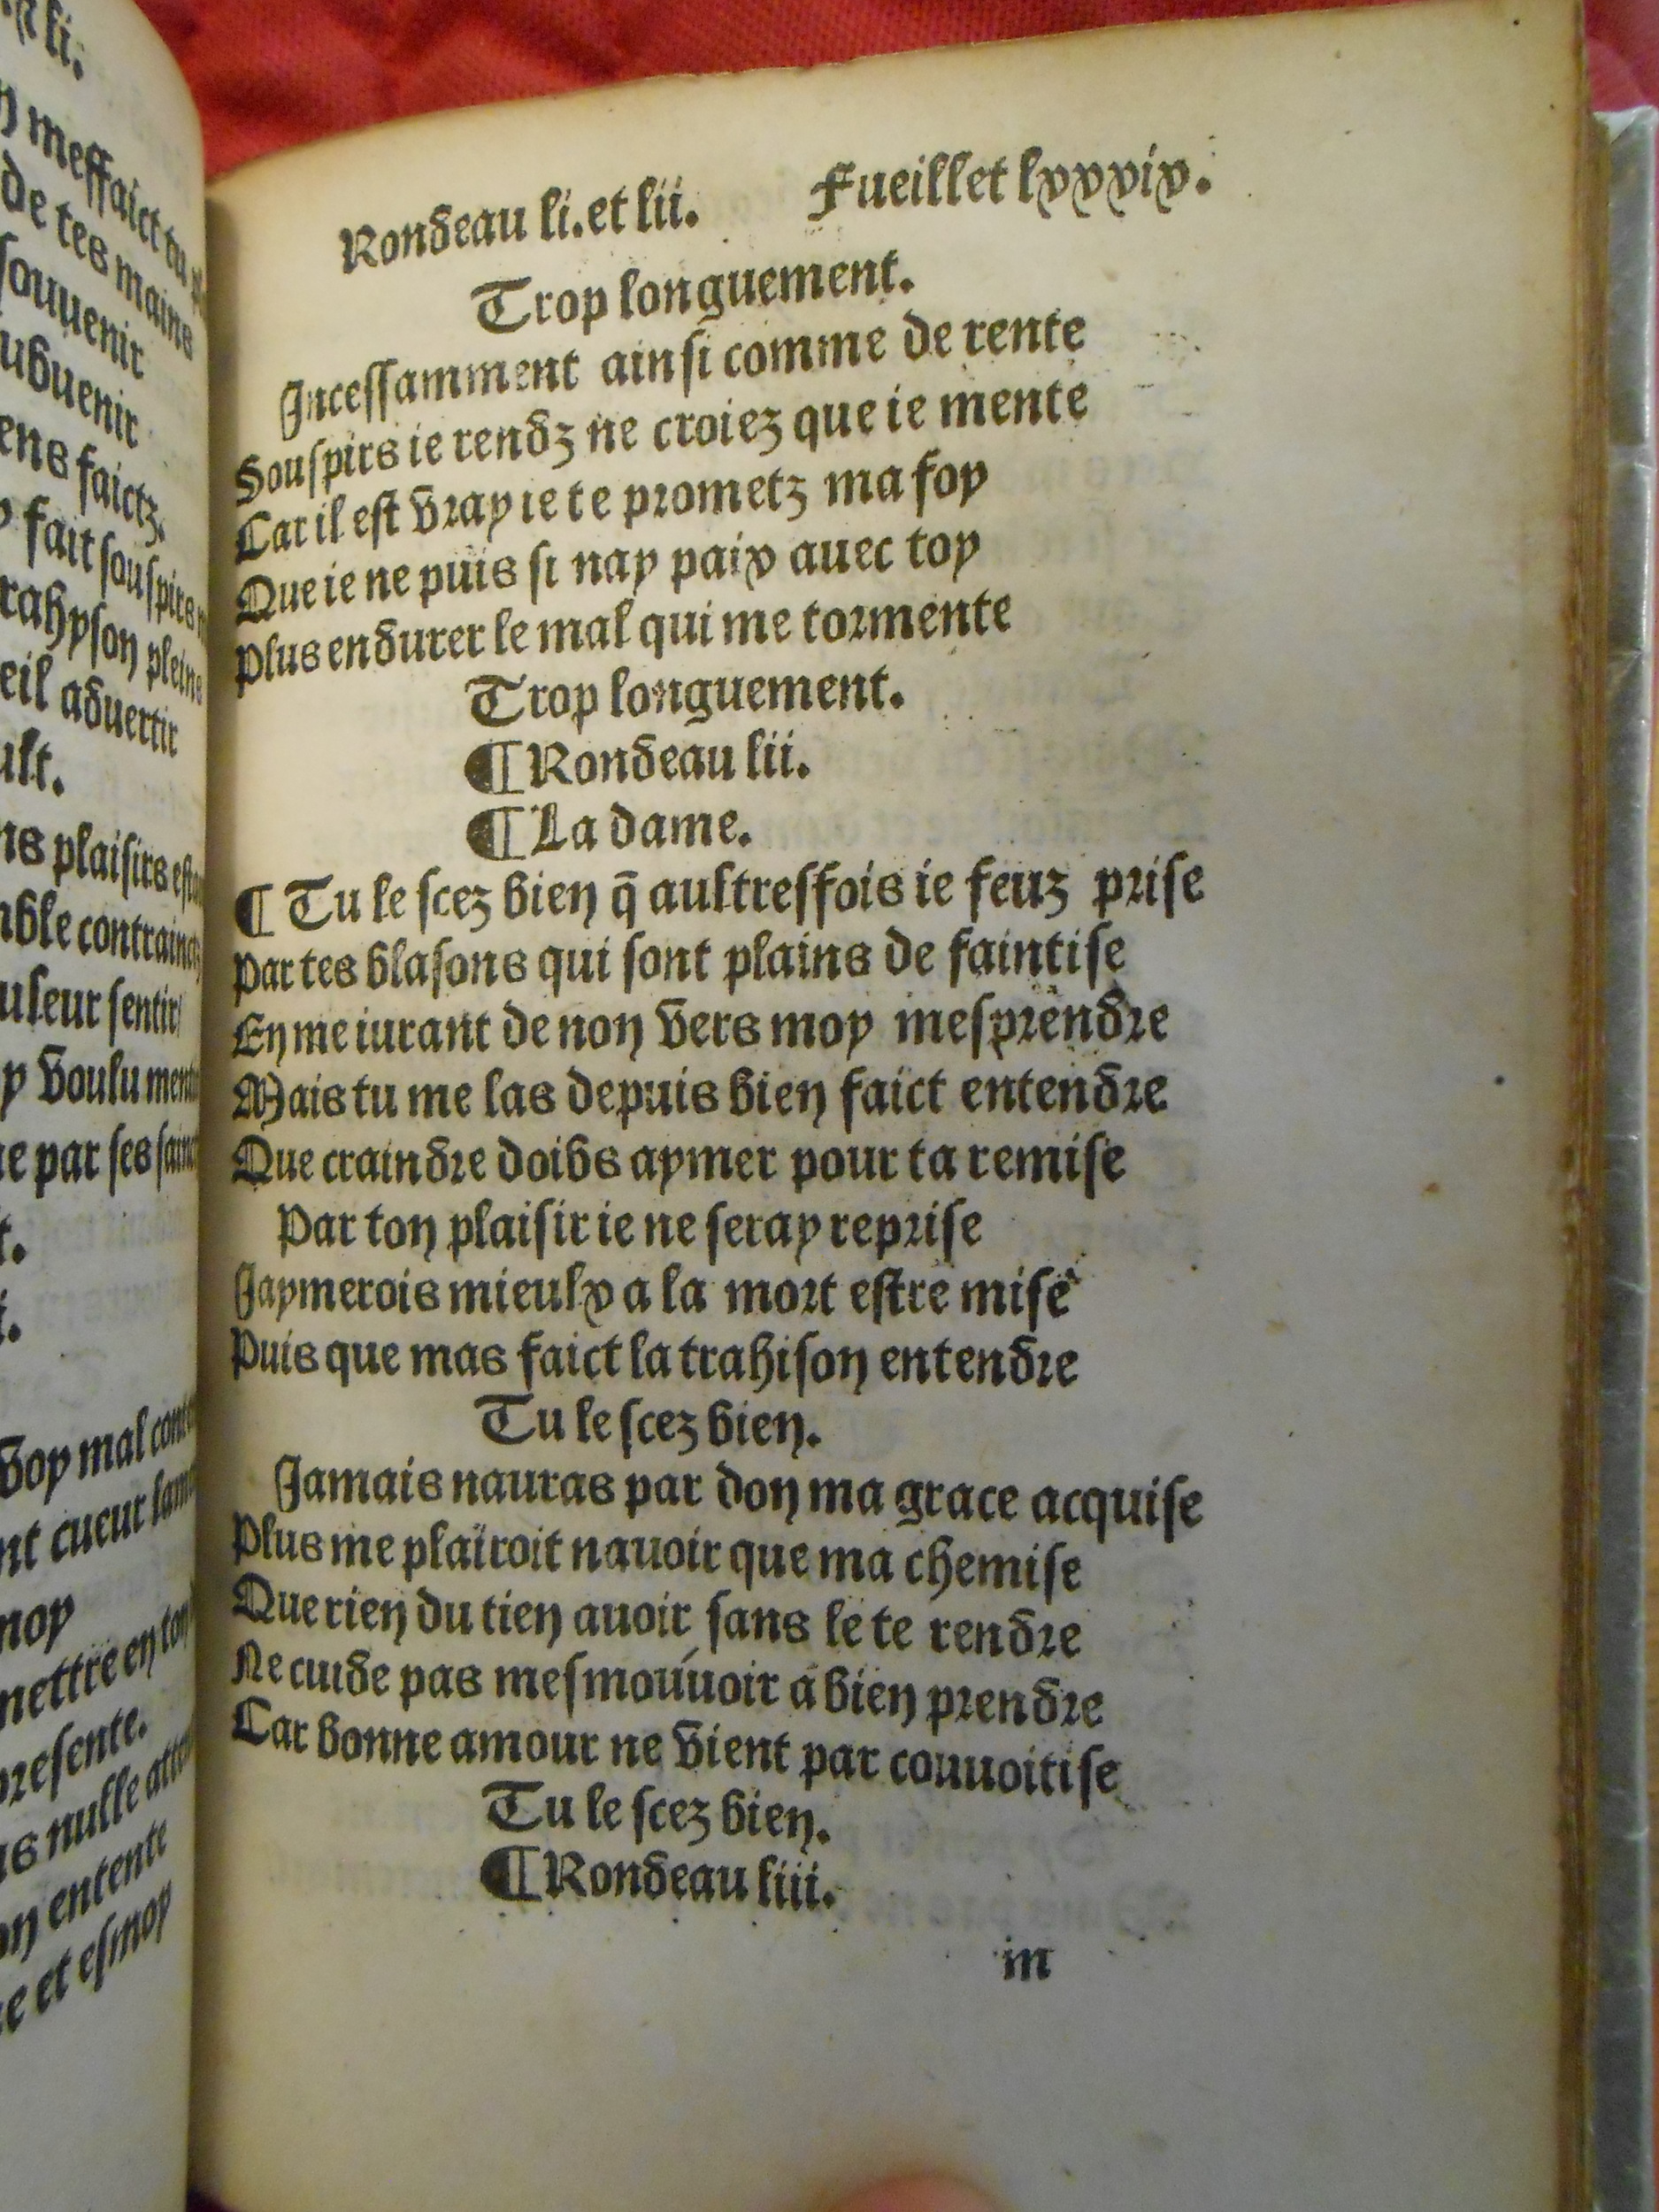 li.
meffaict tu
de tes mains
souuenir
ubuenir
ens faictz.
fait souspirs
trahyson pleins
eil aduertir
ult.
ns plaisirs
able contrainctz
uleur sentir/
y voulu
ie par ses
t.
voy mal
nt cueur
moy
mettre en ton
presente.
as nulle
on entente
ce et esmoy
Rondeau li. et lii. Fueillet lxxxix.
Trop longuement.
Incessamment ainsi comme de rente
Souspirs ie rendz ne croiez que ie mente
Car il est vray ie te prometz ma foy
Que ie ne puis si nay paix auec toy
Plus endurer le mal qui me tormente
Trop longuement.
¶ Rondeau lii.
¶ La dame.
¶ Tu le scez bien q̃ aultresfois ie feuz prise
Par tes blasons qui sont plains de faintise
En me iurant de non vers moy mesprendre
Mais tu me las depuis bien faict entendre
Que craindre doibs aymer pour ta remise
Par ton plaisir ie ne seray reprise
Jaymerois mieulx a la mort estre mise
Puis que mas faict la trahison entendre
Tu le scez bien.
Jamais nauras par don ma grace acquise
Plus me plairoit nauoir que ma chemise
Que rien du tien auoir sans le te rendre
Ne cuide pas mesmouuoir a bien prendre
Car bonne amour ne vient par couuoitise
Tu le scez bien.
¶ Rondeau liii.
m